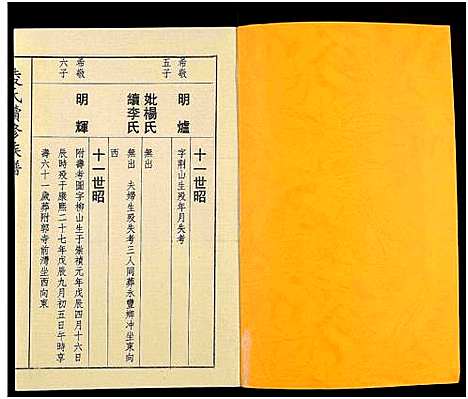 希敬
五子
明爐
十一世昭
字荆山生殁年月失考
妣楊氏
無出
續李氏
無出 夫婦生殁失考三人同葬永豐鄉冲坐東向
西
希敬
六子
明輝
十一世昭
附壽考圖字柳山生于崇禎元年戊辰四月十六日
辰時殁于康熙二十七年戊辰九月初五日午時享
壽六十一歲葬附郭寺前灣坐西向東
氏續修族譜